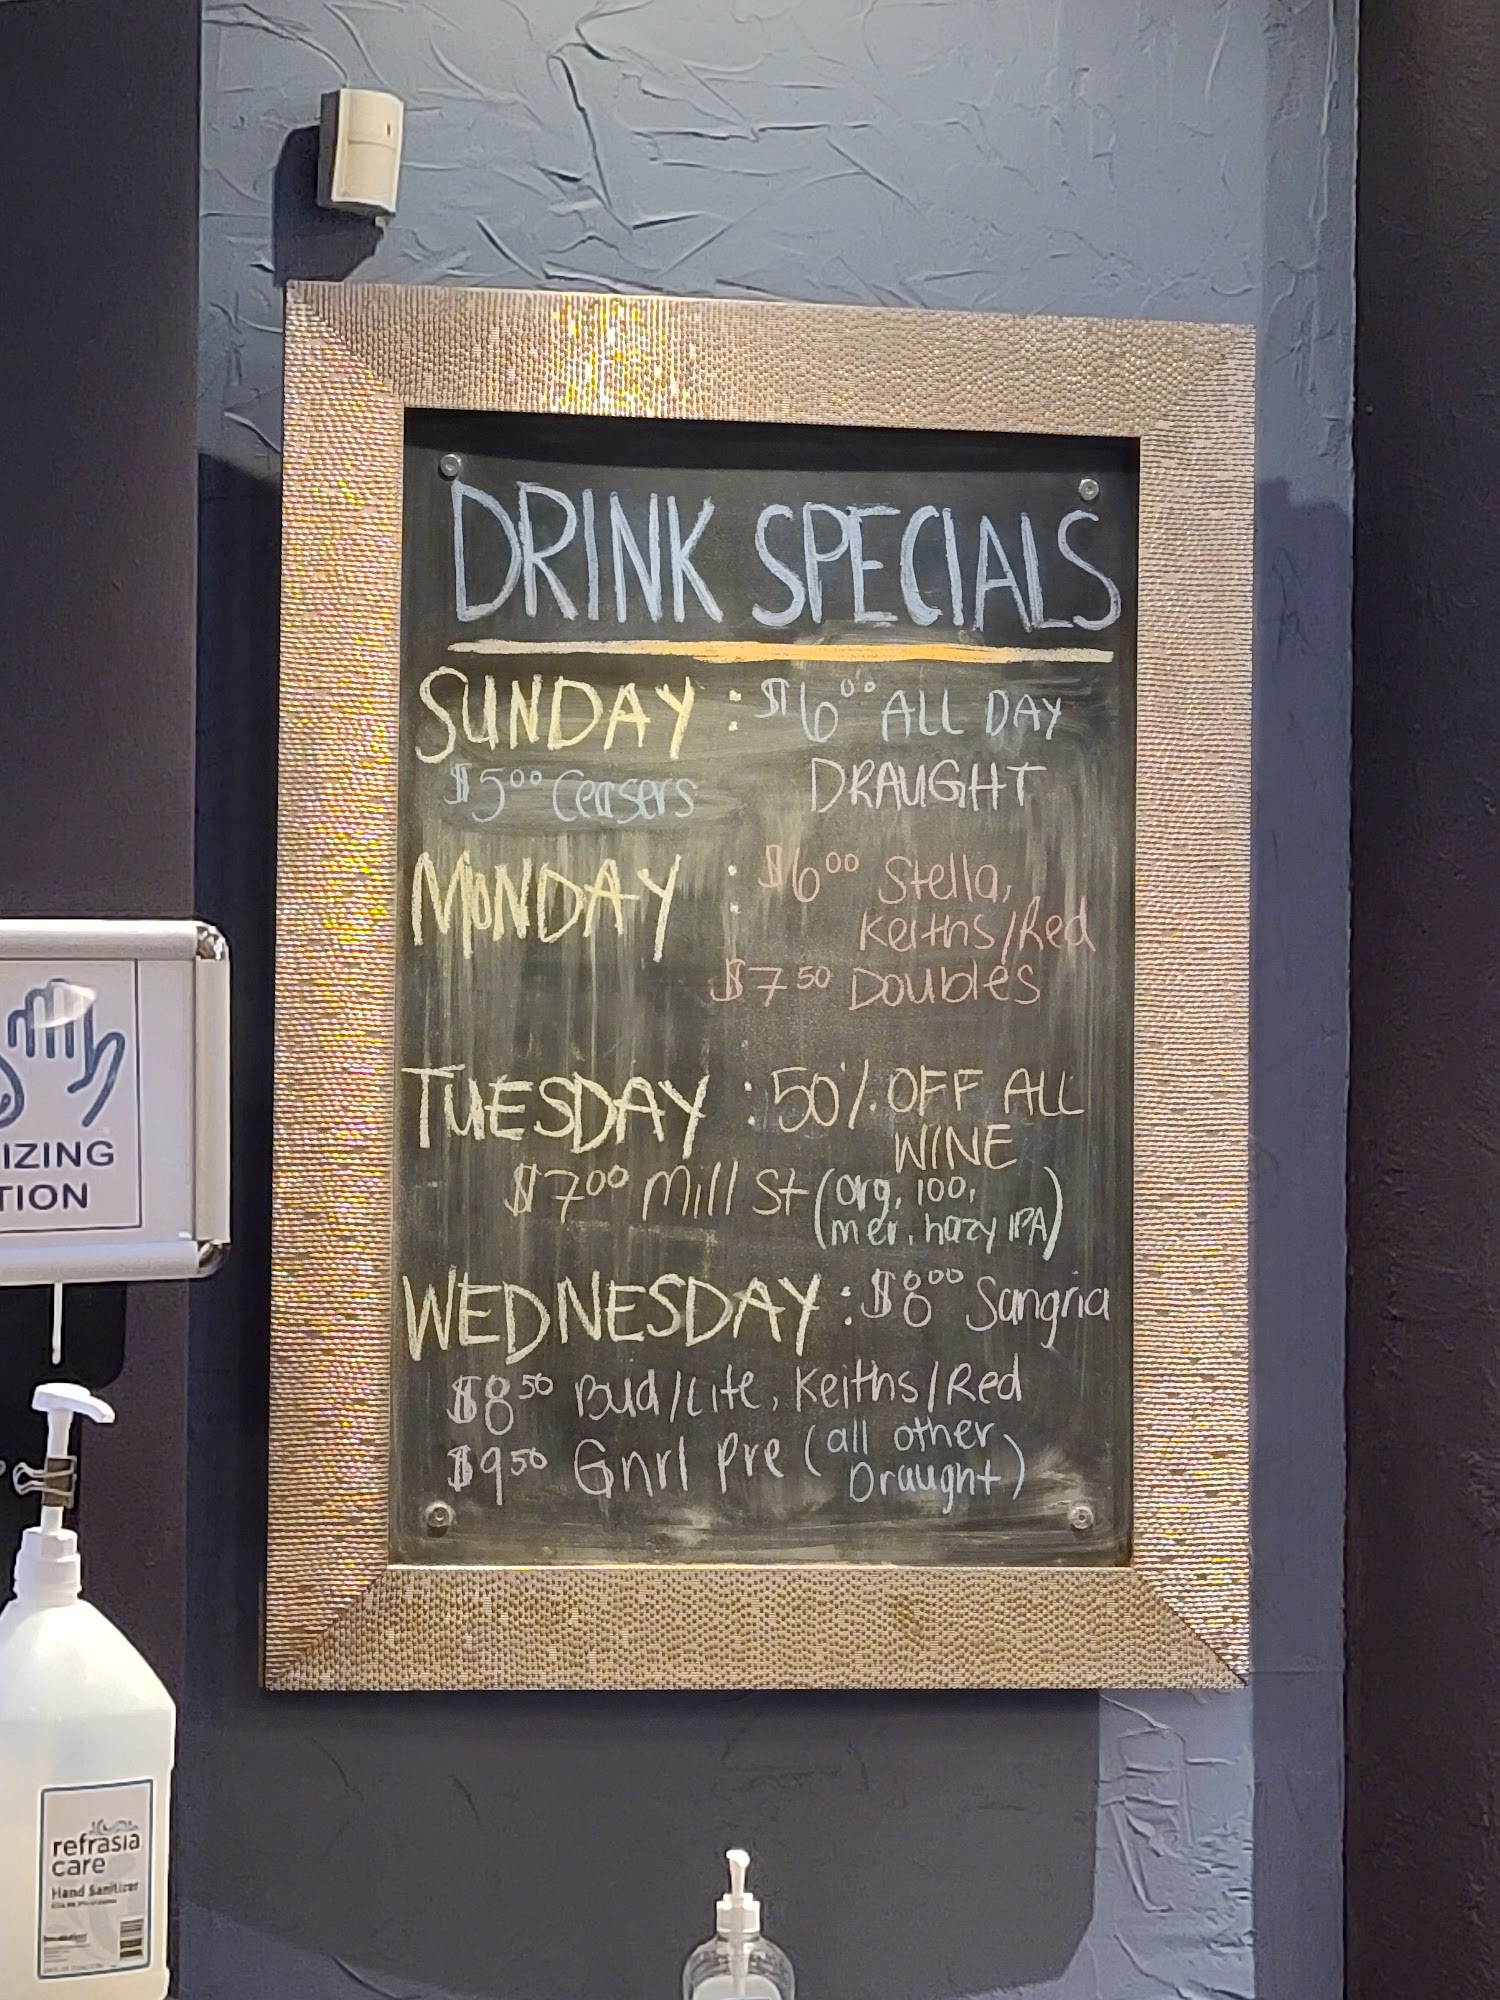 DRINK SPECIALS
SUNDAY : $6⁰⁰ ALL DAY
DRAUGHT
$5⁰⁰ Ceasers
MONDAY : $6⁰⁰ Stella,
Keiths/Red
$7⁵⁰ Doubles
TUESDAY : 50% OFF ALL
WINE
$7⁰⁰ Mill St (org, 100,
mer, hazy IPA)
WEDNESDAY : $8⁰⁰ Sangria
$8⁵⁰ Bud/Lite, Keiths/Red
$9⁵⁰ Gnrl Pre (all other
Draught)
IZING
TION
refrasia
care
Hand Sanitizer